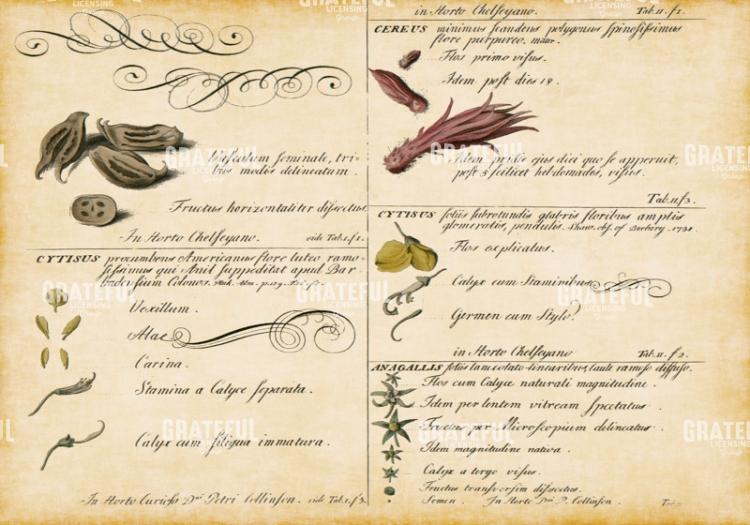 Vasculum seminale, tri-
bus modis delineatum.
Fructus horizontaliter dissectus
In Horto Chelseyano. vide Tab.I.f.I.
CYTISUS procumbens Americanus flore luteo ramo-
sissimus qui Anil suppeditat apud Bar
badensium Colonos.
Vexillum.
Alae
Carina.
Stamina a Calyce separata.
Calyx cum siliqua immatura.
In Horto Curioso Dni Petri Collinson. vide Tab.I.f.3.
in Horto Chelseyano. Tab.II.f.I.
CEREUS minimus scandens polygonus spinosissimus
flore purpureo.
Flos primo visus.
Idem post dies 19.
Idem pridie ejus diei quo se aperuit,
post 3 scilicet hebdomades, visus.
Tab.II.f.3.
CYTISUS foliis subrotundis glabris floribus amplis
glomeratis, pendulis. Shaw. of Barbary.
Flos explicatus.
Calyx cum Staminibus
Germen cum Stylo.
in Horto Chelseyano Tab.II.f.2.
ANAGALLIS foliis lanceolato-linearibus, caule ramoso diffuso.
Flos cum Calyce naturali magnitudine.
Idem per lentem vitream spectatus
Fructus per Microscopium delineatus.
Idem magnitudine nativa.
Calyx a tergo visus.
Fructus transversim dissectus.
Semen. In Horto Dni P. Collinson.
GRATEFUL
LICENSING
Group